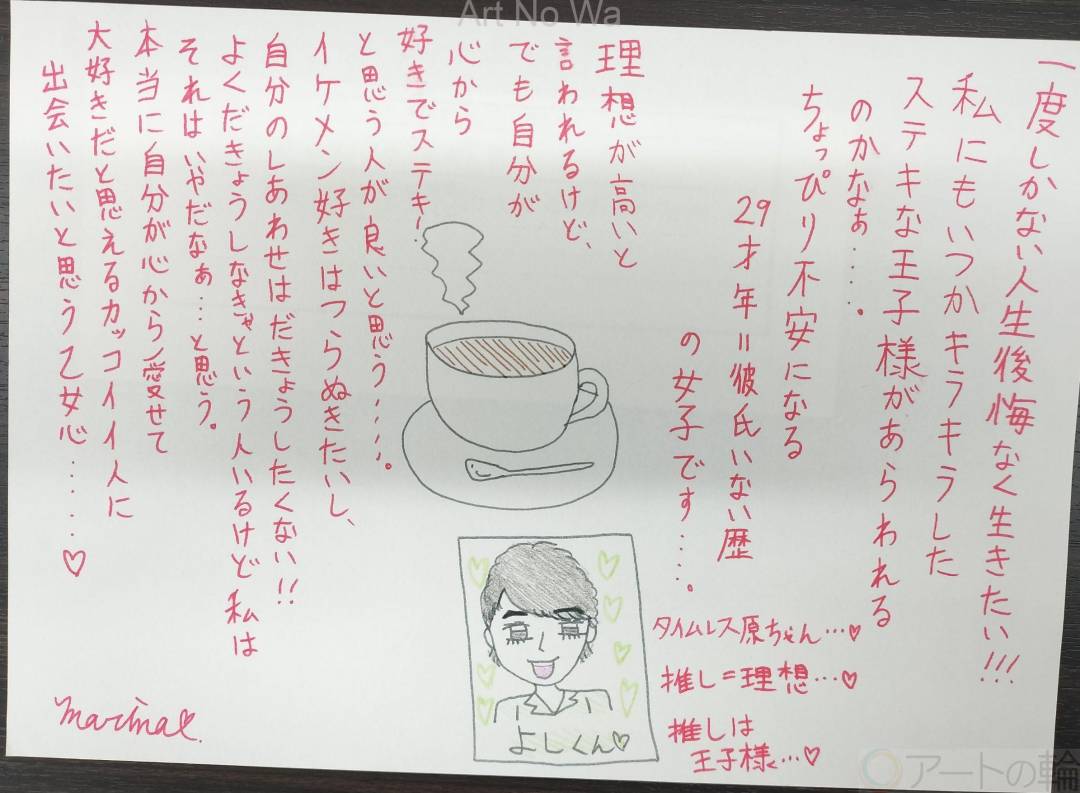 Art No Wa
一度しかない人生後悔なく生きたい!!!
私にもいつかキラキラした
ステキな王子様があらわれる
のかなぁ・・・・。
ちょっぴり不安になる
29才年=彼氏いない歴
の女子です・・・・。
理想が高いと
言われるけど、
でも自分が
心から
好きでステキ・・
と思う人が良いと思う・・・・。
イケメン好きはつらぬきたいし、
自分のしあわせはだきょうしたくない!!
よくだきょうしなきゃという人いるけど私は
それはいやだなぁ…と思う。
本当に自分が心から愛せて
大好きだと思えるカッコイイ人に
出会いたいと思う乙女心・・・・・♡
よしくん♡
タイムレス原ちゃん…♡
推し=理想…♡
推しは
王子様…♡
marina
アートの輪